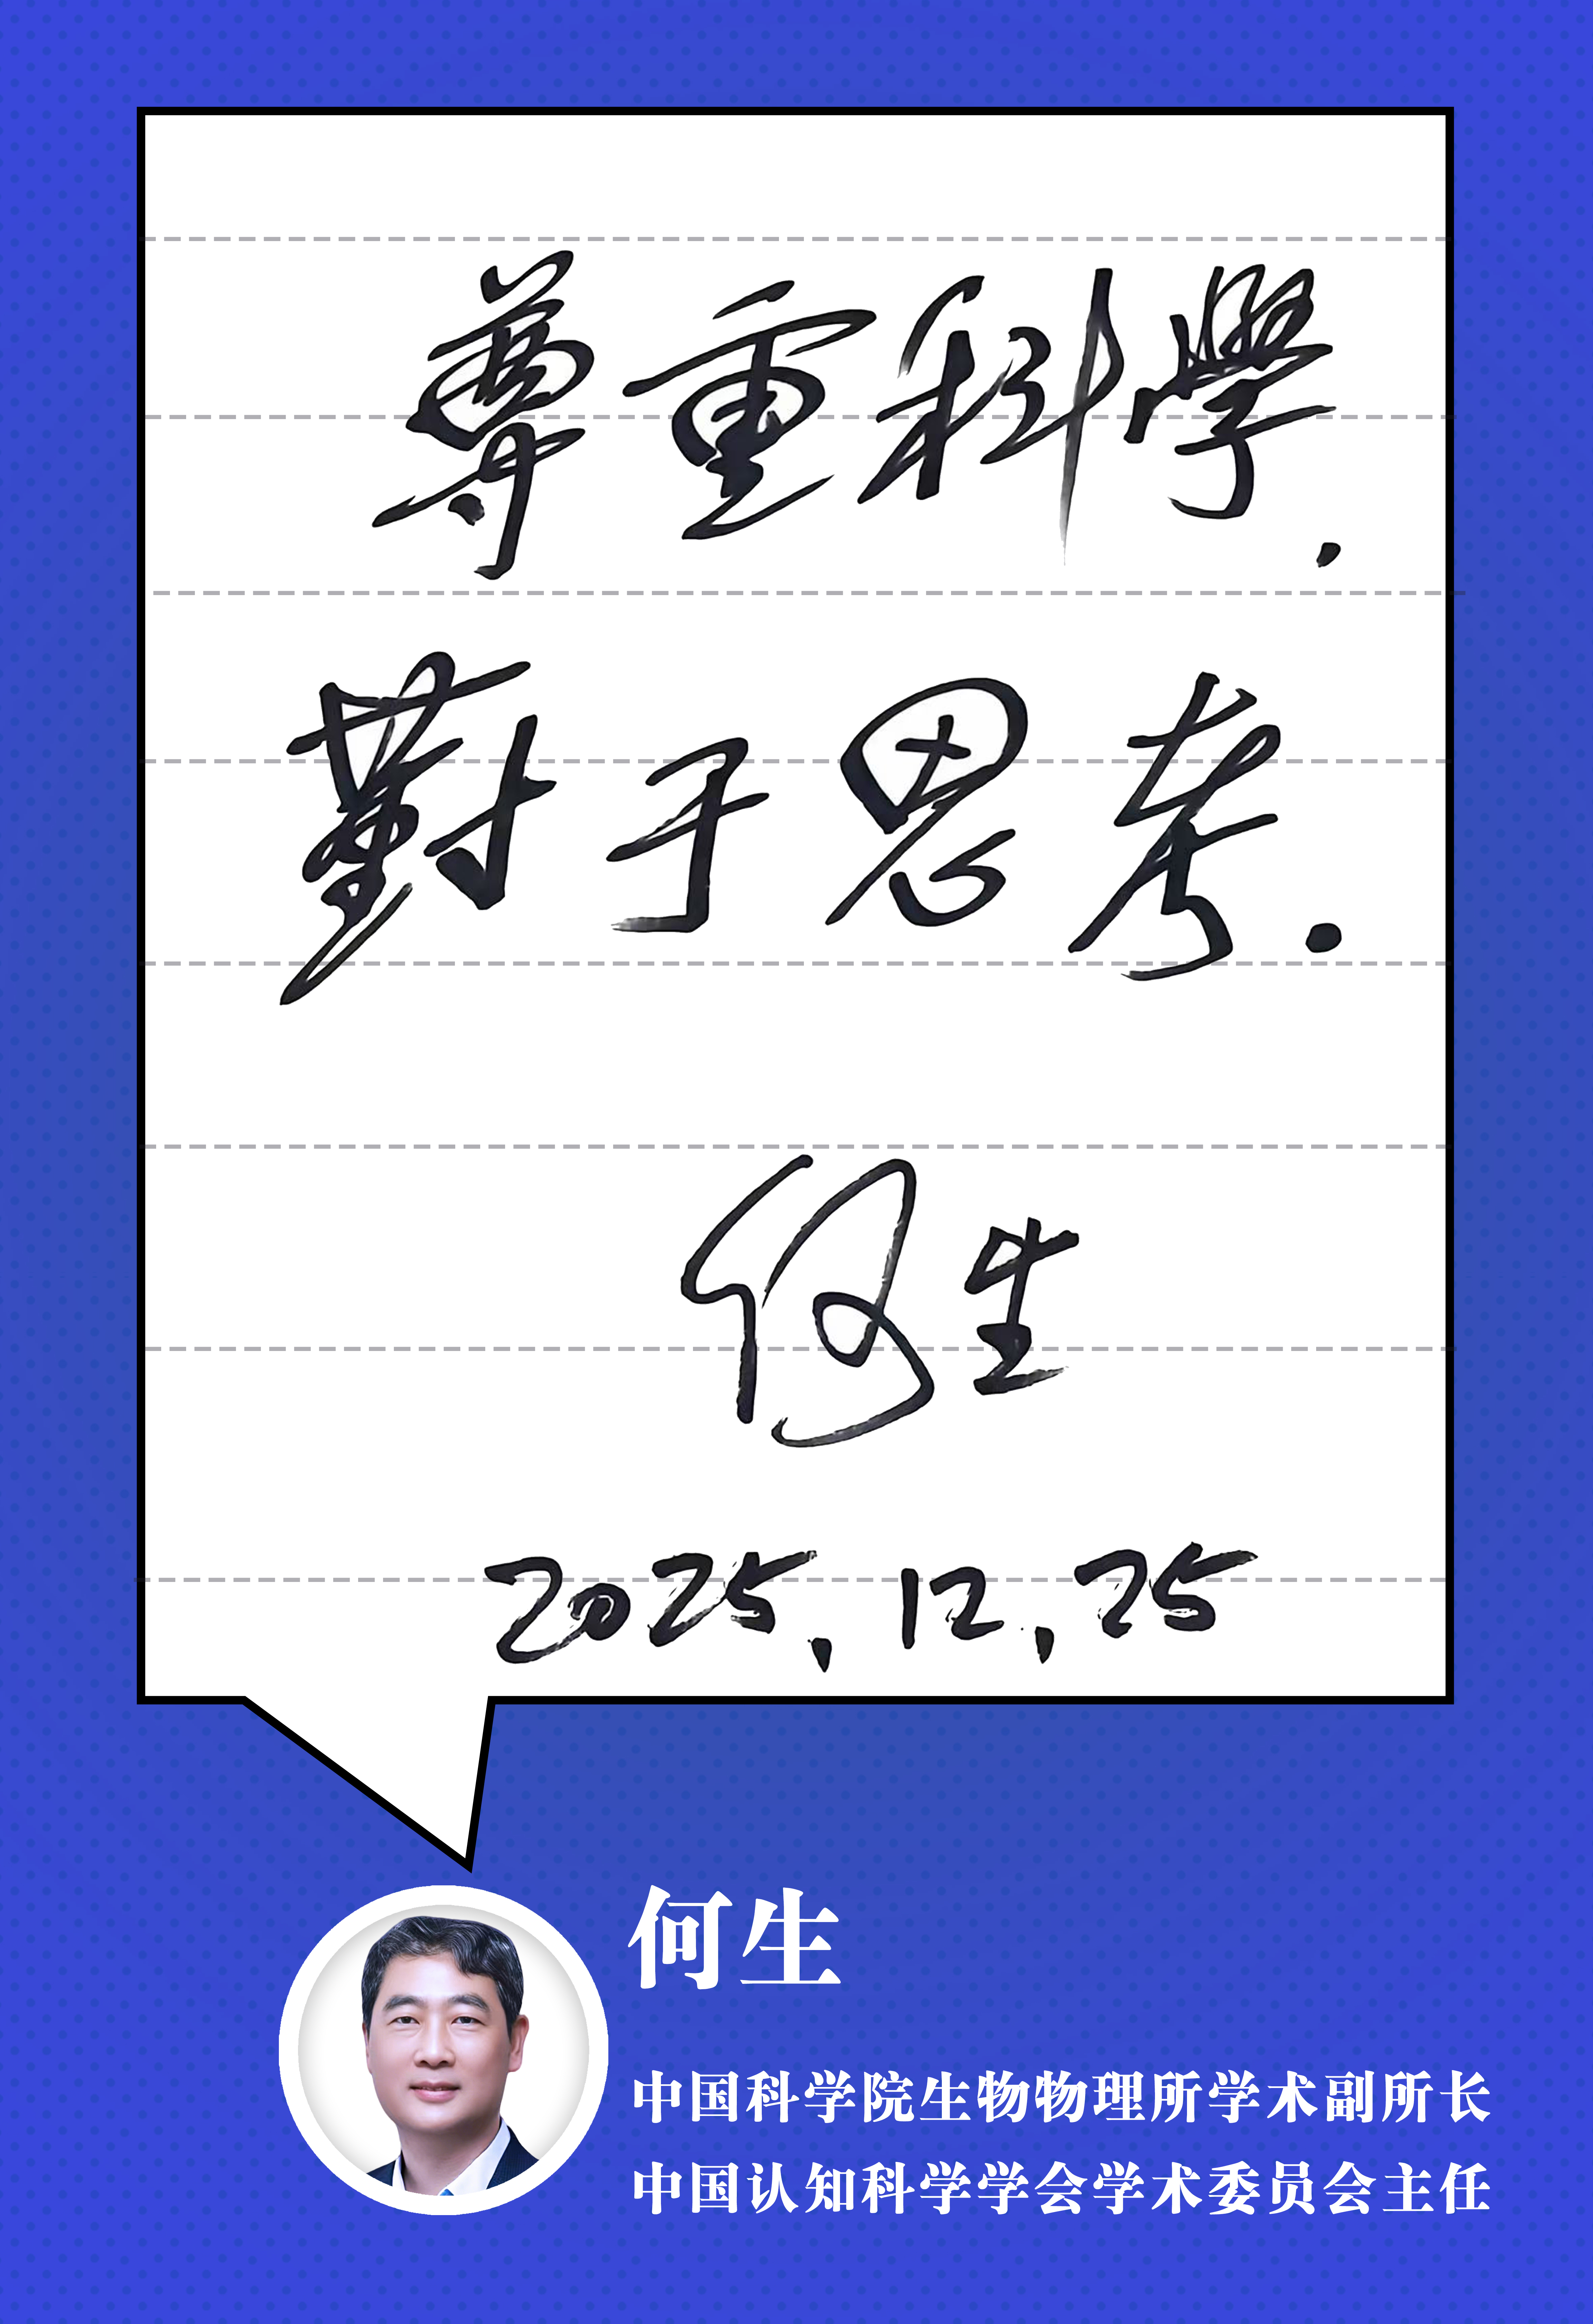 尊重科學.
勤于思考.
何生
2025.12.25
何生
中国科学院生物物理所学术副所长
中国认知科学学会学术委员会主任